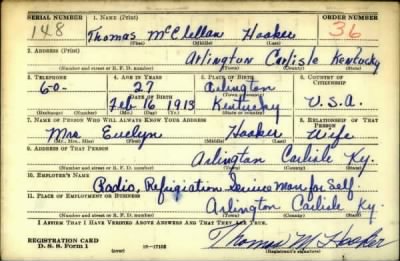 SERIAL NUMBER 1. NAME (Print) ORDER NUMBER
148 Thomas McClellan Hooker 36
(First) (Middle) (Last)
2. ADDRESS (Print)
Arlington Carlisle Kentucky
(Number and street or R. F. D. number) (Town) (County) (State)
3. TELEPHONE 4. AGE IN YEARS 5. PLACE OF BIRTH 6. COUNTRY OF CITIZENSHIP
60- 27 Arlington
DATE OF BIRTH
Feb 16 1913 Kentucky U.S.A.
(Exchange) (Number) (Mo.) (Day) (Yr.) (State or country)
7. NAME OF PERSON WHO WILL ALWAYS KNOW YOUR ADDRESS 8. RELATIONSHIP OF THAT PERSON
Mrs Evelyn Hooker Wife
(Mr., Mrs., Miss) (First) (Middle) (Last)
9. ADDRESS OF THAT PERSON
Arlington Carlisle Ky.
(Number and street or R. F. D. number) (Town) (County) (State)
10. EMPLOYER'S NAME
Radio, Refrigiation Service Man for Self
11. PLACE OF EMPLOYMENT OR BUSINESS
Arlington Carlisle Ky.
(Number and street or R. F. D. number) (Town) (County) (State)
I AFFIRM THAT I HAVE VERIFIED ABOVE ANSWERS AND THAT THEY ARE TRUE.
REGISTRATION CARD
D. S. S. Form 1 (over) 16—17105 Thomas M Hooker